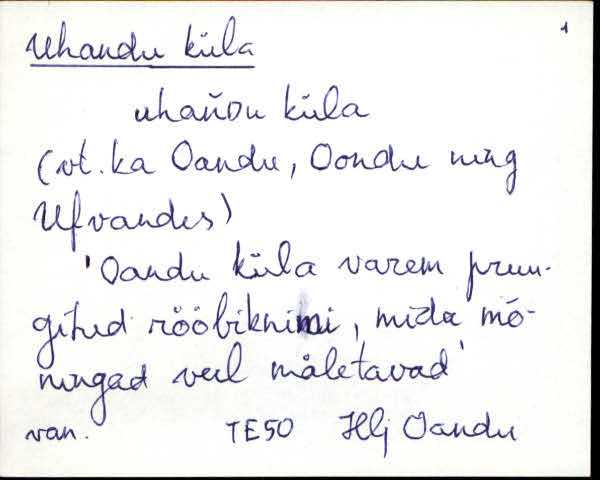 1
Uhandu küla
uhańDu küla
(vt. ka Oandu, Oondu ning
Ufvandes)
'Oandu küla varem pruu-
gitud rööbiknimi, mida mõ-
ningad veel mäletavad'
van. TE50 Hlj Oandu